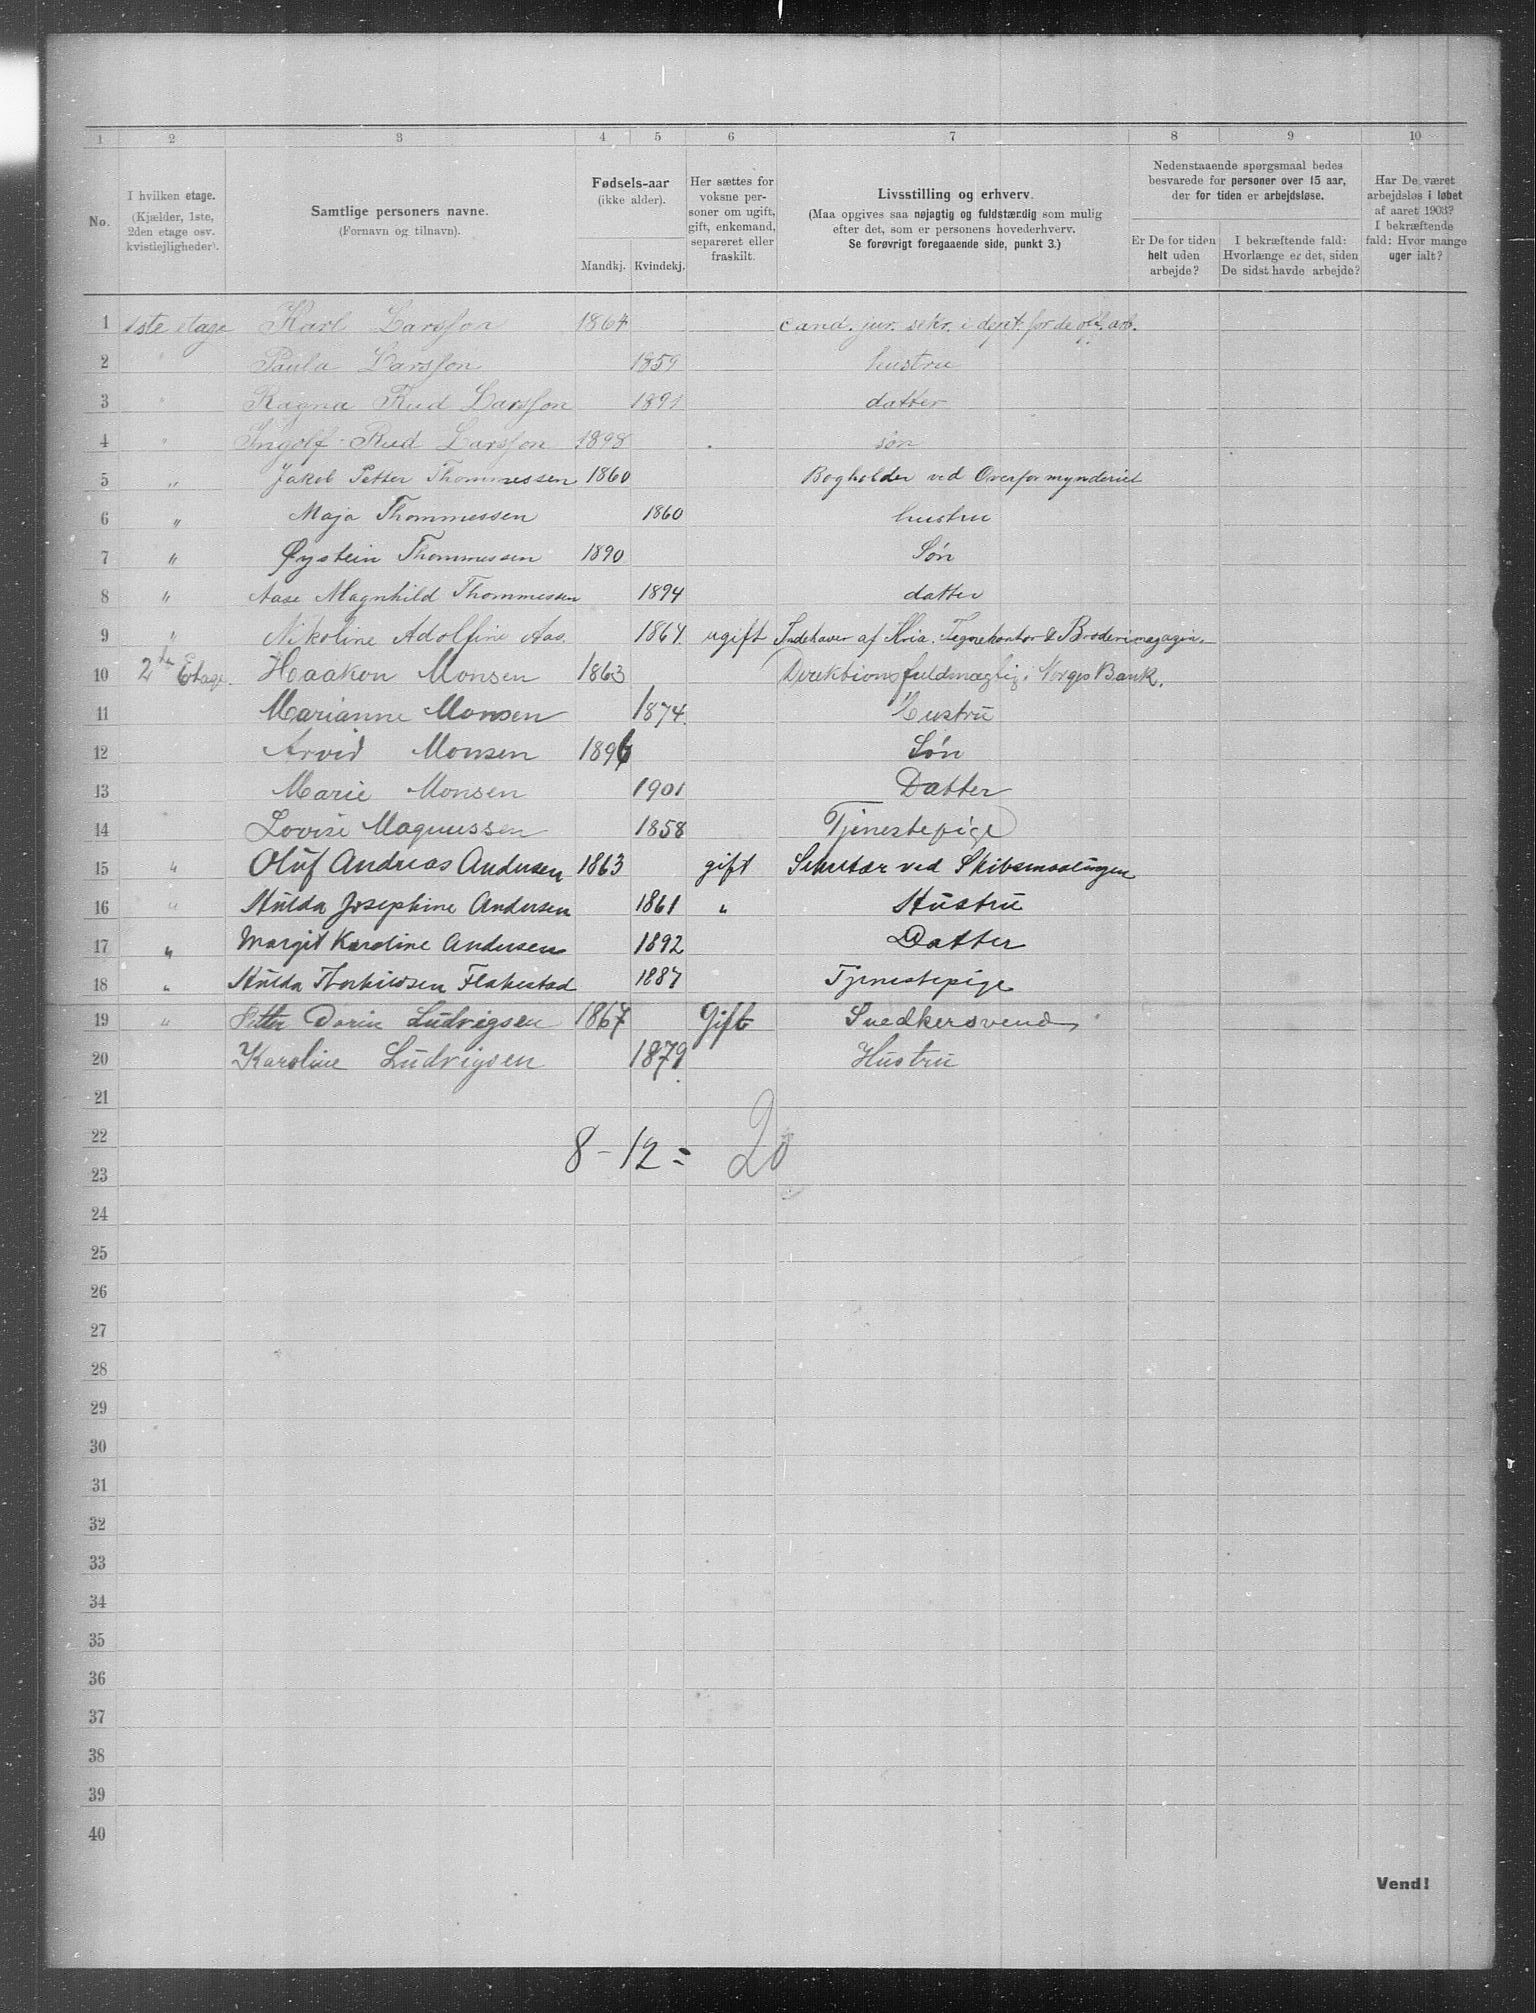 1 2 3 4 5 6 7 8 9 10
No.
I hvilken etage.
(Kjælder, 1ste,
2den etage osv.
kvistlejligheder).
Samtlige personers navne.
(Fornavn og tilnavn).
Fødsels-aar
(ikke alder).
Mandkj. Kvindekj.
Her sættes for
voksne per-
soner om ugift,
gift, enkemand,
separeret eller
fraskilt.
Livsstilling og erhverv.
(Maa opgives saa nøjagtig og fuldstærdig som mulig
efter det, som er personens hovederhverv.
Se forøvrigt foregaaende side, punkt 3.)
Nedenstaaende spørgsmaal bedes
besvarede for personer over 15 aar,
der for tiden er arbejdsløse.
Er De for tiden
helt uden
arbejde?
I bekræftende fald:
Hvorlænge er det, siden
De sidst havde arbejde?
Har De været
arbejdsløs i løbet
af aaret 1903?
I bekræftende
fald: Hvor mange
uger ialt?
1 1ste etage Karl Larsson 1864 cand. jur. sekr. i dept. for de off. arb.
2 Paula Larsson 1859 hustru
3 " Ragna Rud Larsson 1891 datter
4 " Ingolf Rud Larsson 1898 søn
5 " Jakob Petter Thommessen 1860 Bogholder ved Overformynderiet
6 " Maja Thommessen 1860 hustru
7 " Øystein Thommessen 1890 Søn
8 " Aase Magnhild Thommessen 1894 datter
9 " Nikoline Adolfine Aas. 1864. ugift Indehaver af Kria. Tegnekontor & Broderimagazin.
10 2den Etage. Haakon Monsen 1863 Direktionsfuldmægtig i Norges Bank.
11 Marianne Monsen 1874. Hustru
12 Arvid Monsen 1896 Søn
13 Marie Monsen 1901 Datter
14 Lovise Magnussen 1858 Tjenestepige
15 " Oluf Andreas Andersen 1863 gift Sekretær ved Skibsmaalingen
16 " Hulda Josephine Andersen 1861 " Hustru
17 " Margit Karoline Andersen 1892 Datter
18 " Hulda Thorkildsen Flakestad 1887 Tjenestepige
19 " Petter Dorin Ludvigsen 1867 Gift Snedkersvend
20 Karoline Ludvigsen 1879. Hustru
21
22
8 - 12 = 20
23
24
25
26
27
28
29
30
31
32
33
34
35
36
37
38
39
40
Vend!